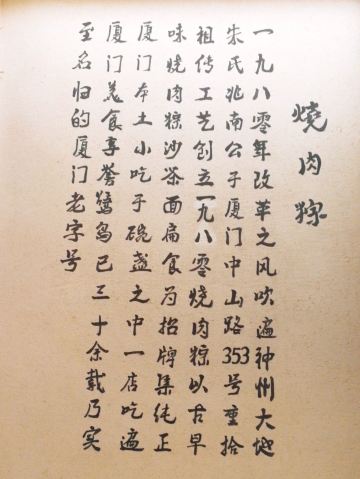 燒肉粽
一九八零年改革之风吹遍神州大地
朱氏兆南公于厦门中山路353号重拾
祖传工艺创立一九八零烧肉粽以古早
味烧肉粽沙茶面扁食为招牌集纯正
厦门本土小吃于碗盏之中一店吃遍
厦门美食享誉鹭岛已三十余载乃实
至名归的厦门老字号